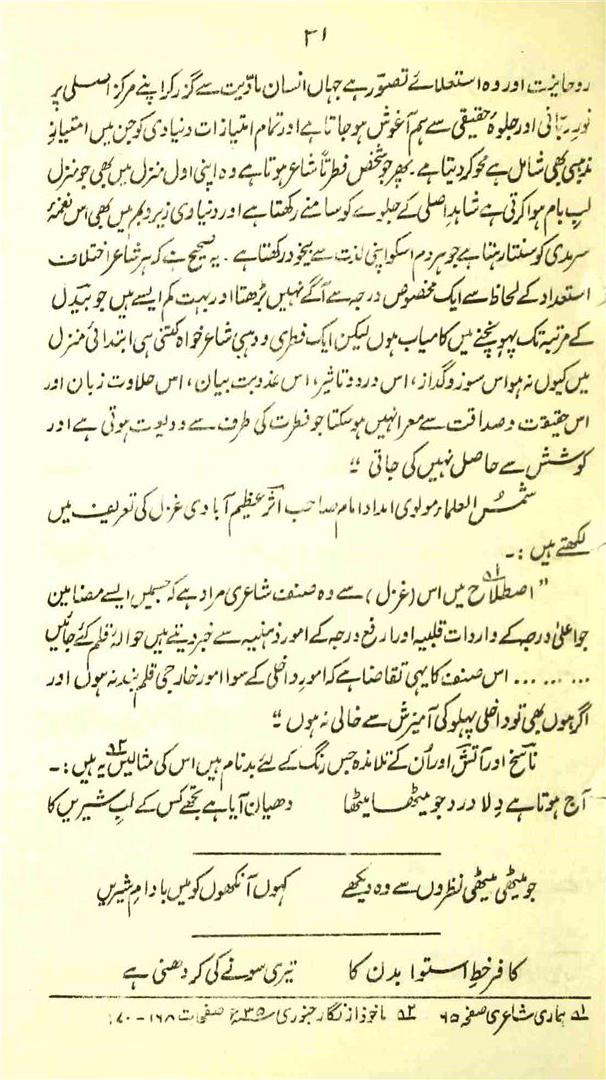 ۳۱
روحانیت اور وہ استعلائے تصوّر ہے جہاں انسان مادّیت سے گزر کر اپنے مرکز اصلی پر
نورِ ربّانی اور جلوۂ حقیقی سے ہم آغوش ہو جاتا ہے اور تمام امتیازات دنیاوی کو جن میں امتیازِ
مذہبی بھی شامل ہے محو کر دیتا ہے۔ پھر جو شخص فطرتاً شاعر ہوتا ہے وہ اپنی اول منزل میں بھی جو منزل
لبِ بام ہوا کرتی ہے شاہدِ اصلی کے جلوے کو سامنے رکھتا ہے اور دنیاوی زیر و بم میں بھی اس نغمۂ
سرمدی کو سنتا رہتا ہے جو ہر دم اسکو اپنی لذت سے بیخود رکھتا ہے۔ یہ صحیح ہے کہ ہر شاعر اختلاف
استعداد کے لحاظ سے ایک مخصوص درجہ سے آگے نہیں بڑھتا اور بہت کم ایسے ہیں جو بیدل
کے مرتبہ تک پہونچنے میں کامیاب ہوں لیکن ایک فطری و وہبی شاعر خواہ کتنی ہی ابتدائی منزل
میں کیوں نہ ہو اس سوز و گداز، اس درد و تاثیر، اس عذوبت بیان، اس حلاوت زبان اور
اس حقیقت و صداقت سے معرا نہیں ہو سکتا جو فطرت کی طرف سے ودیعت ہوتی ہے اور
کوشش سے حاصل نہیں کی جاتی "
شمس العلماء مولوی امداد امام صاحب اثر عظیم آبادی غزل کی تعریف میں
لکھتے ہیں :۔
" اصطلاح میں اس (غزل) سے وہ صنف شاعری مراد ہے کہ جسمیں ایسے مضامین
جو اعلیٰ درجہ کے واردات قلبیہ اور ارفع درجہ کے امور ذہنیہ سے خبر دیتے ہیں حوالۂ قلم کئے جائیں
... ... ... اس صنف کا یہی تقاضا ہے کہ امورِ داخلی کے سوا امور خارجی قلم بند نہ ہوں اور
اگر ہوں بھی تو داخلی پہلو کی آمیزش سے خالی نہ ہوں "
ناسخ اور آتش اور اُن کے تلامذہ جس رنگ کے لئے بدنام ہیں اس کی مثالیں ۲ یہ ہیں :۔
آج ہوتا ہے دِلا درد جو میٹھا میٹھا دھیان آیا ہے تجھے کس کے لبِ شیریں کا
جو میٹھی میٹھی نظروں سے وہ دیکھے کہوں آنکھوں کو میں بادامِ شیریں
کافر خطِ استوا بدن کا تیری سونے کی کردھنی ہے
۱ ہماری شاعری صفحہ ۶۵ ۲ ماخوذ از نگار جنوری ۱۹۳۵ء صفحات ۱۶۸-۱۷۰